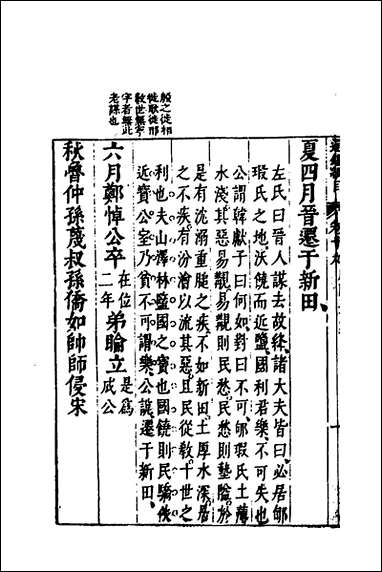 夏四月晉遷于新田
左氏曰晉人謀去故絳諸大夫皆曰必居郇
瑕氏之地沃饒而近鹽國利君樂不可失也
公謂韓獻子曰何如對曰不可郇瑕氏土薄
水淺其惡易覯易覯則民愁民愁則墊隘於
是有沈溺重膇之疾不如新田土厚水深居
之不疾有汾澮以流其惡且民從教十世之
利也夫山澤林鹽國之寶也國饒則民驕佚
近寶公室乃貧不可謂樂公說遷于新田
之徒相
字者無此
老謀也
六月鄭悼公卒在位二年弟睔立是為成公
秋魯仲孫蔑叔孫僑如帥師侵宋